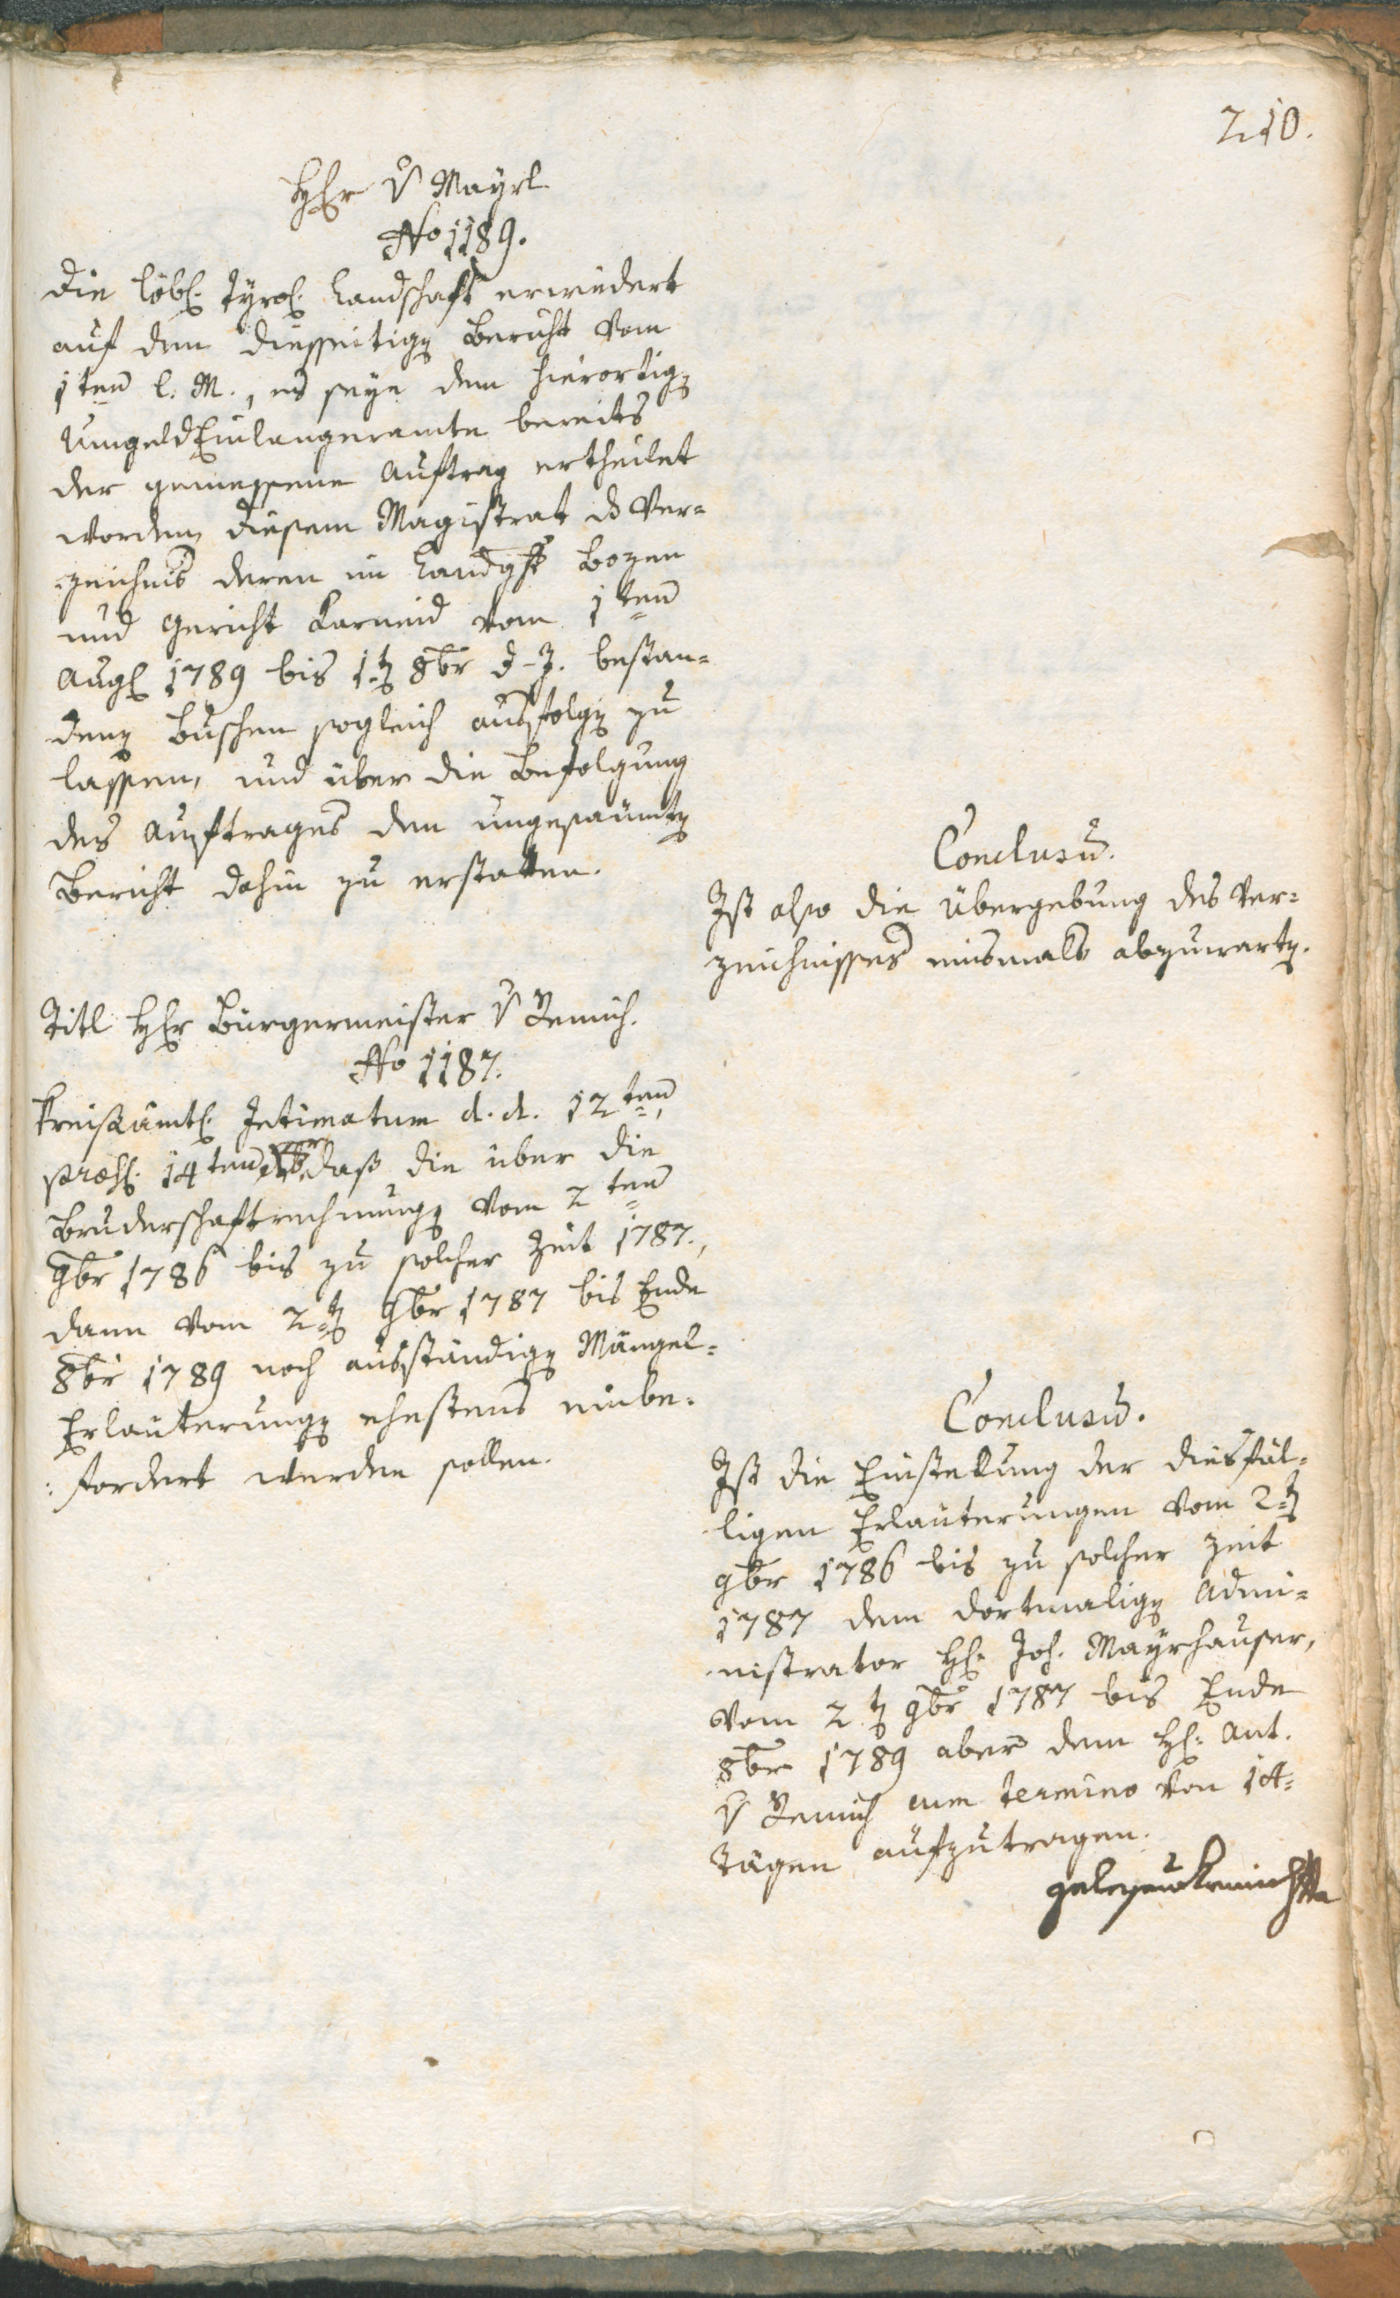 210.
Herr v Mayrl
No 1189.
Die löbl. Tyrol. Landschaft erwiedert
auf den diesseitigen Bericht vom
1ten l. M., es seye dem hierortigen
UmgeldEinlangeramte bereits
der gemessene Auftrag ertheilet
worden, diesem Magistrat ds Ver=
zeichnis deren im Landght Bozen
und Gericht Karneid vom 1ten
Augl 1789 bis 1ten 8br d. J. bestan=
denen Buschen sogleich ausfolgen zu
lassen, und über die Befolgung
des Auftrages den ungesäumten
Bericht dahin zu erstatten.
Conclusum.
Ist also die Übergebung des Ver=
zeichnisses einsmals abzuwarten.
Titl Herr Bürgermeister v Remich.
No 1187.
Kreisämtl. Intimatum d. d. 12ten,
præs. 14ten daß die über die
Bruderschaftrechnungen vom 2ten
9br 1786 bis zu solcher Zeit 1787.,
dann vom 2ten 9br 1787 bis Ende
8br 1789 noch ausständigen Mängel=
Erläuterungen ehestens einbe=
fordert werden sollen.
Conclusum.
Ist die Einstellung der diesfäl=
ligen Erläuterungen vom 2ten
9br 1786 bis zu solcher Zeit
1787 dem dortmaligen Admi=
nistrator H. Joh. Mayrhauser,
vom 2ten 9br 1787 bis Ende
8br 1789 aber dem H. Ant.
v Remich cum termino von 14=
Tägen aufzutragen.
gelesen Remich